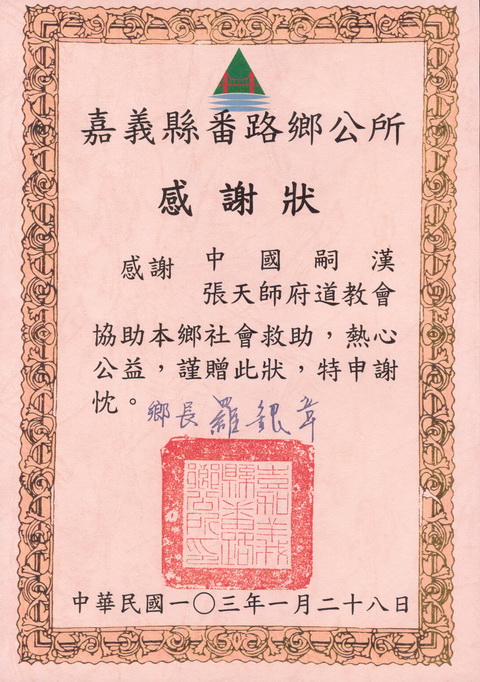 嘉義縣番路鄉公所
感謝狀
感謝 中國嗣漢
張天師府道教會
協助本鄉社會救助，熱心
公益，謹贈此狀，特申謝
忱。
鄉長 羅銀章
嘉義縣番路鄉公所印
中華民國一〇三年一月二十八日